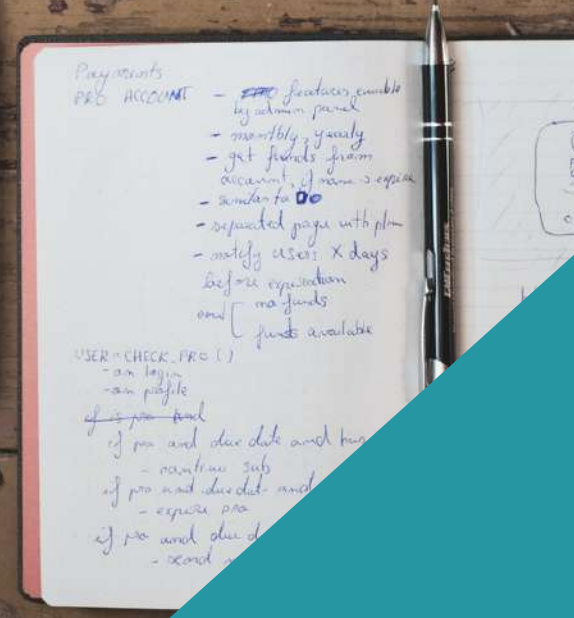 Payments
PRO ACCOUNT - features enable
by admin panel
- monthly, yearly
- get funds from
account, if none → expire
- similar to DO
- separated page with plan
- notify users X days
before expiration
and [ no funds
funds available
USER::CHECK_PRO()
- on login
- on profile
if is pro and
if pro and due date and
- continue sub
if pro and due date and
- expire pro
if pro and due d
- send